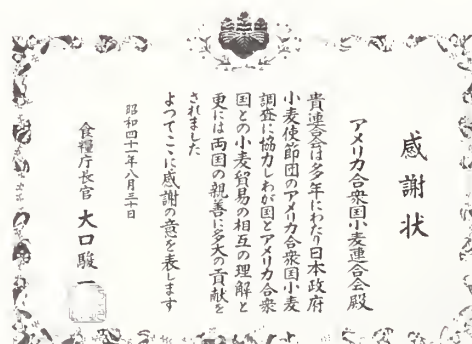 感謝状
アメリカ合衆国小麦連合会殿
貴連合会は多年にわたり日本政府
小麦使節団のアメリカ合衆国小麦
調査に協力しわが国とアメリカ合衆
国との小麦貿易の相互の理解と
更には両国の親善に多大の貢献を
されました
よつてここに感謝の意を表します
昭和四十一年八月三十日
食糧庁長官 大口駿一